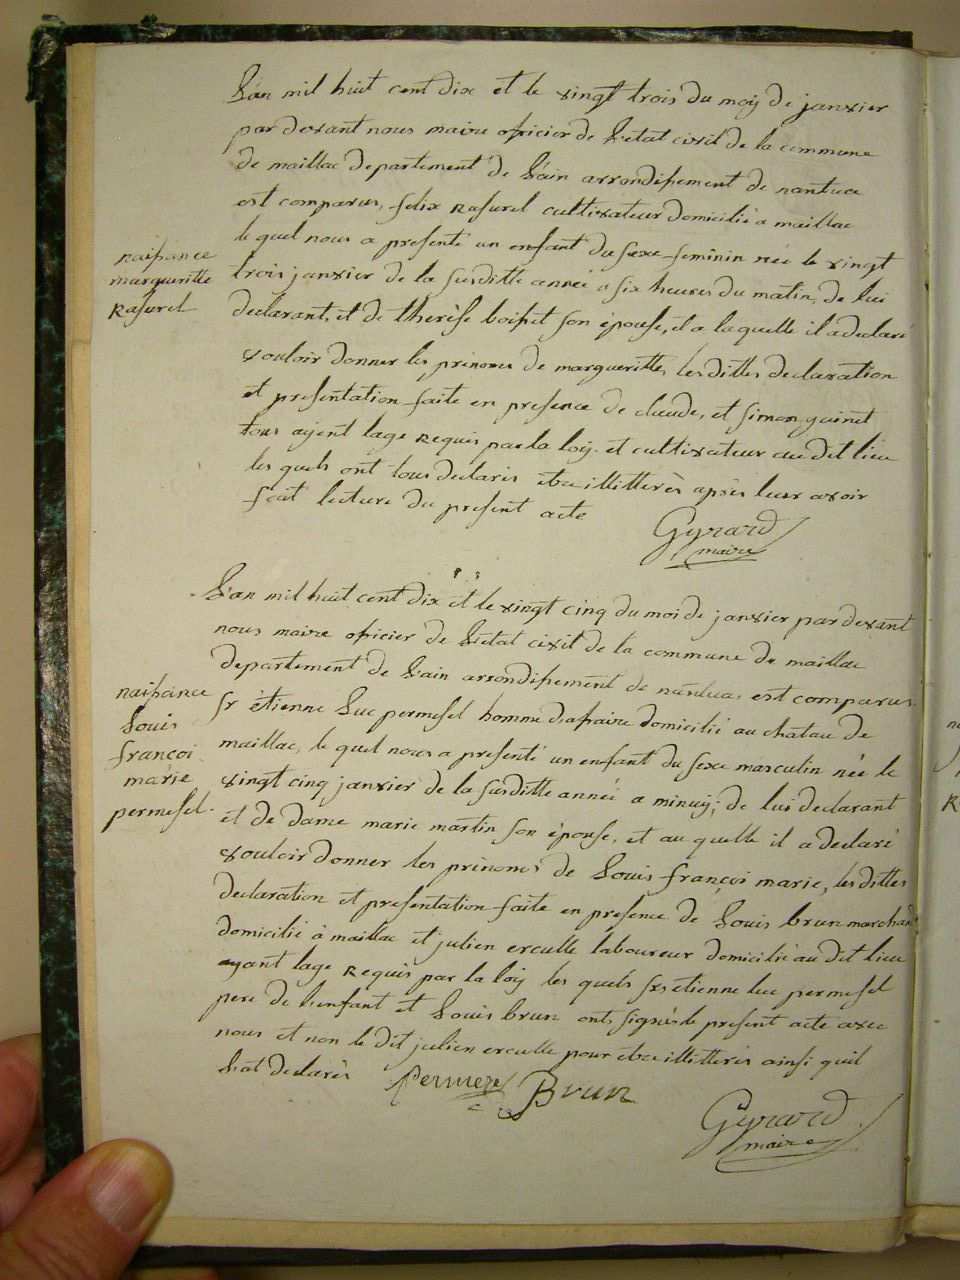 L'an mil huit cent dix et le vingt trois du moy de janvier
par devant nous maire oficier de L'etat civil de la commune
de maillac departement de L'ain arrondissement de nantua
est comparus, felix Rasurel cultivateur domicilié a maillac
le quel nous a presenté un enfant du sexe feminin née le vingt
naissance
margueritte
Rasurel
trois janvier de la susditte année a six heures du matin, de lui
declarant, et de therèse boisset son épouse, et a laquelle il a declaré
vouloir donner les prénoms de margueritte, les dittes declaration
et presentation faite en presence de claude, et simon guinet
tous ayent lage requis par la loy et cultivateur au dit lieu
les quels ont tous declarés être illitterès après leur avoir
fait lecture du present acte
Gyrard
maire
L'an mil huit cent dix et le vingt cinq du moi de janvier par devant
nous maire oficier de L'etat civil de la commune de maillac
departement de L'ain arrondissement de nantua, est comparus
naissance
Louis
françoi
marie
permesel
sr ètienne Luc permesel homme d'afaire domicilié au chatau de
maillac, le quel nous a presenté un enfant du sexe masculin née le
vingt cinq janvier de la susditte année a minuij; de lui declarant
et de dame marie martin son épouse, et au quelle il a declaré
vouloir donner les prénoms de Louis françoi marie, les dittes
declaration et presentation faite en presence de Louis brun marchand
domicilié à maillac et julien erculle laboureur domicilié au dit lieu
ayant lage requis par la loij les quels srs etienne luc permesel
pere de l'enfant et Louis brun ont signés le present acte avec
nous et non le dit julien erculle pour être illitterés ainsi quil
L'at declarès
Permezel
Brun
Gyrard
maire